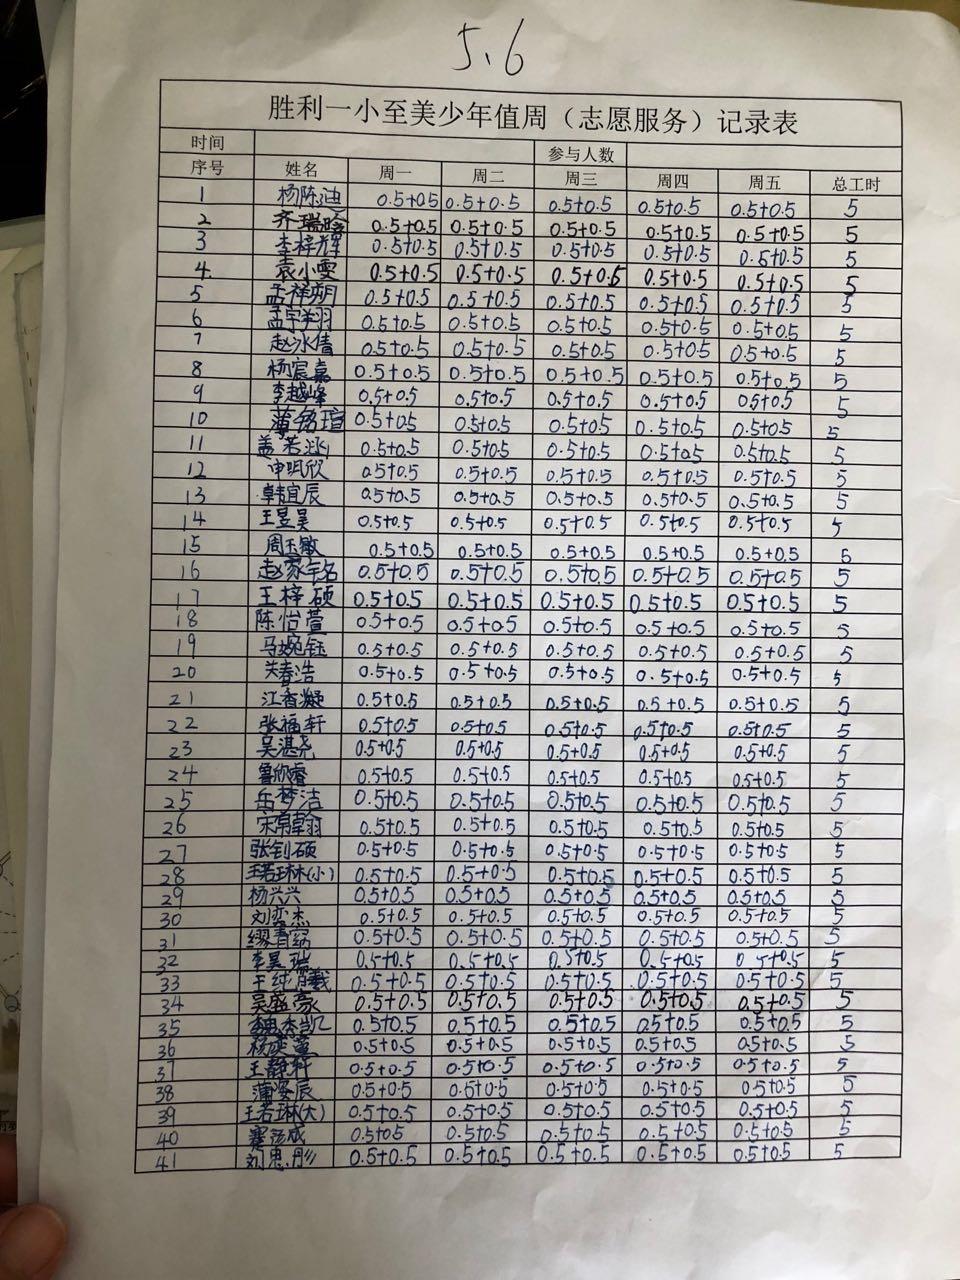 5.6
胜利一小至美少年值周（志愿服务）记录表
时间 参与人数
序号 姓名 周一 周二 周三 周四 周五 总工时
1 杨陈迪 0.5+0.5 0.5+0.5 0.5+0.5 0.5+0.5 0.5+0.5 5
2 齐瑞晗 0.5+0.5 0.5+0.5 0.5+0.5 0.5+0.5 0.5+0.5 5
3 李梓辉 0.5+0.5 0.5+0.5 0.5+0.5 0.5+0.5 0.5+0.5 5
4 袁小雯 0.5+0.5 0.5+0.5 0.5+0.5 0.5+0.5 0.5+0.5 5
5 孟祥朔 0.5+0.5 0.5+0.5 0.5+0.5 0.5+0.5 0.5+0.5 5
6 孟宇翔 0.5+0.5 0.5+0.5 0.5+0.5 0.5+0.5 0.5+0.5 5
7 赵冰倩 0.5+0.5 0.5+0.5 0.5+0.5 0.5+0.5 0.5+0.5 5
8 杨宸嘉 0.5+0.5 0.5+0.5 0.5+0.5 0.5+0.5 0.5+0.5 5
9 李越峰 0.5+0.5 0.5+0.5 0.5+0.5 0.5+0.5 0.5+0.5 5
10 薄铭瑄 0.5+0.5 0.5+0.5 0.5+0.5 0.5+0.5 0.5+0.5 5
11 盖若 0.5+0.5 0.5+0.5 0.5+0.5 0.5+0.5 0.5+0.5 5
12 申明欣 0.5+0.5 0.5+0.5 0.5+0.5 0.5+0.5 0.5+0.5 5
13 韩宜辰 0.5+0.5 0.5+0.5 0.5+0.5 0.5+0.5 0.5+0.5 5
14 王昱昊 0.5+0.5 0.5+0.5 0.5+0.5 0.5+0.5 0.5+0.5 5
15 周玉敏 0.5+0.5 0.5+0.5 0.5+0.5 0.5+0.5 0.5+0.5 5
16 赵家铭 0.5+0.5 0.5+0.5 0.5+0.5 0.5+0.5 0.5+0.5 5
17 王梓硕 0.5+0.5 0.5+0.5 0.5+0.5 0.5+0.5 0.5+0.5 5
18 陈怡萱 0.5+0.5 0.5+0.5 0.5+0.5 0.5+0.5 0.5+0.5 5
19 马婉钰 0.5+0.5 0.5+0.5 0.5+0.5 0.5+0.5 0.5+0.5 5
20 关春浩 0.5+0.5 0.5+0.5 0.5+0.5 0.5+0.5 0.5+0.5 5
21 江香凝 0.5+0.5 0.5+0.5 0.5+0.5 0.5+0.5 0.5+0.5 5
22 张福轩 0.5+0.5 0.5+0.5 0.5+0.5 0.5+0.5 0.5+0.5 5
23 吴湛尧 0.5+0.5 0.5+0.5 0.5+0.5 0.5+0.5 0.5+0.5 5
24 鲁欣睿 0.5+0.5 0.5+0.5 0.5+0.5 0.5+0.5 0.5+0.5 5
25 岳梦洁 0.5+0.5 0.5+0.5 0.5+0.5 0.5+0.5 0.5+0.5 5
26 宋翰 0.5+0.5 0.5+0.5 0.5+0.5 0.5+0.5 0.5+0.5 5
27 张钊硕 0.5+0.5 0.5+0.5 0.5+0.5 0.5+0.5 0.5+0.5 5
28 王若琳(小) 0.5+0.5 0.5+0.5 0.5+0.5 0.5+0.5 0.5+0.5 5
29 杨兴兴 0.5+0.5 0.5+0.5 0.5+0.5 0.5+0.5 0.5+0.5 5
30 刘奕杰 0.5+0.5 0.5+0.5 0.5+0.5 0.5+0.5 0.5+0.5 5
31 缪青窈 0.5+0.5 0.5+0.5 0.5+0.5 0.5+0.5 0.5+0.5 5
32 李昊瑞 0.5+0.5 0.5+0.5 0.5+0.5 0.5+0.5 0.5+0.5 5
33 王纯曦 0.5+0.5 0.5+0.5 0.5+0.5 0.5+0.5 0.5+0.5 5
34 吴盛豪 0.5+0.5 0.5+0.5 0.5+0.5 0.5+0.5 0.5+0.5 5
35 杰凯 0.5+0.5 0.5+0.5 0.5+0.5 0.5+0.5 0.5+0.5 5
36 杨 0.5+0.5 0.5+0.5 0.5+0.5 0.5+0.5 0.5+0.5 5
37 王静轩 0.5+0.5 0.5+0.5 0.5+0.5 0.5+0.5 0.5+0.5 5
38 蒲姿辰 0.5+0.5 0.5+0.5 0.5+0.5 0.5+0.5 0.5+0.5 5
39 王若琳(大) 0.5+0.5 0.5+0.5 0.5+0.5 0.5+0.5 0.5+0.5 5
40 成 0.5+0.5 0.5+0.5 0.5+0.5 0.5+0.5 0.5+0.5 5
41 刘思彤 0.5+0.5 0.5+0.5 0.5+0.5 0.5+0.5 0.5+0.5 5